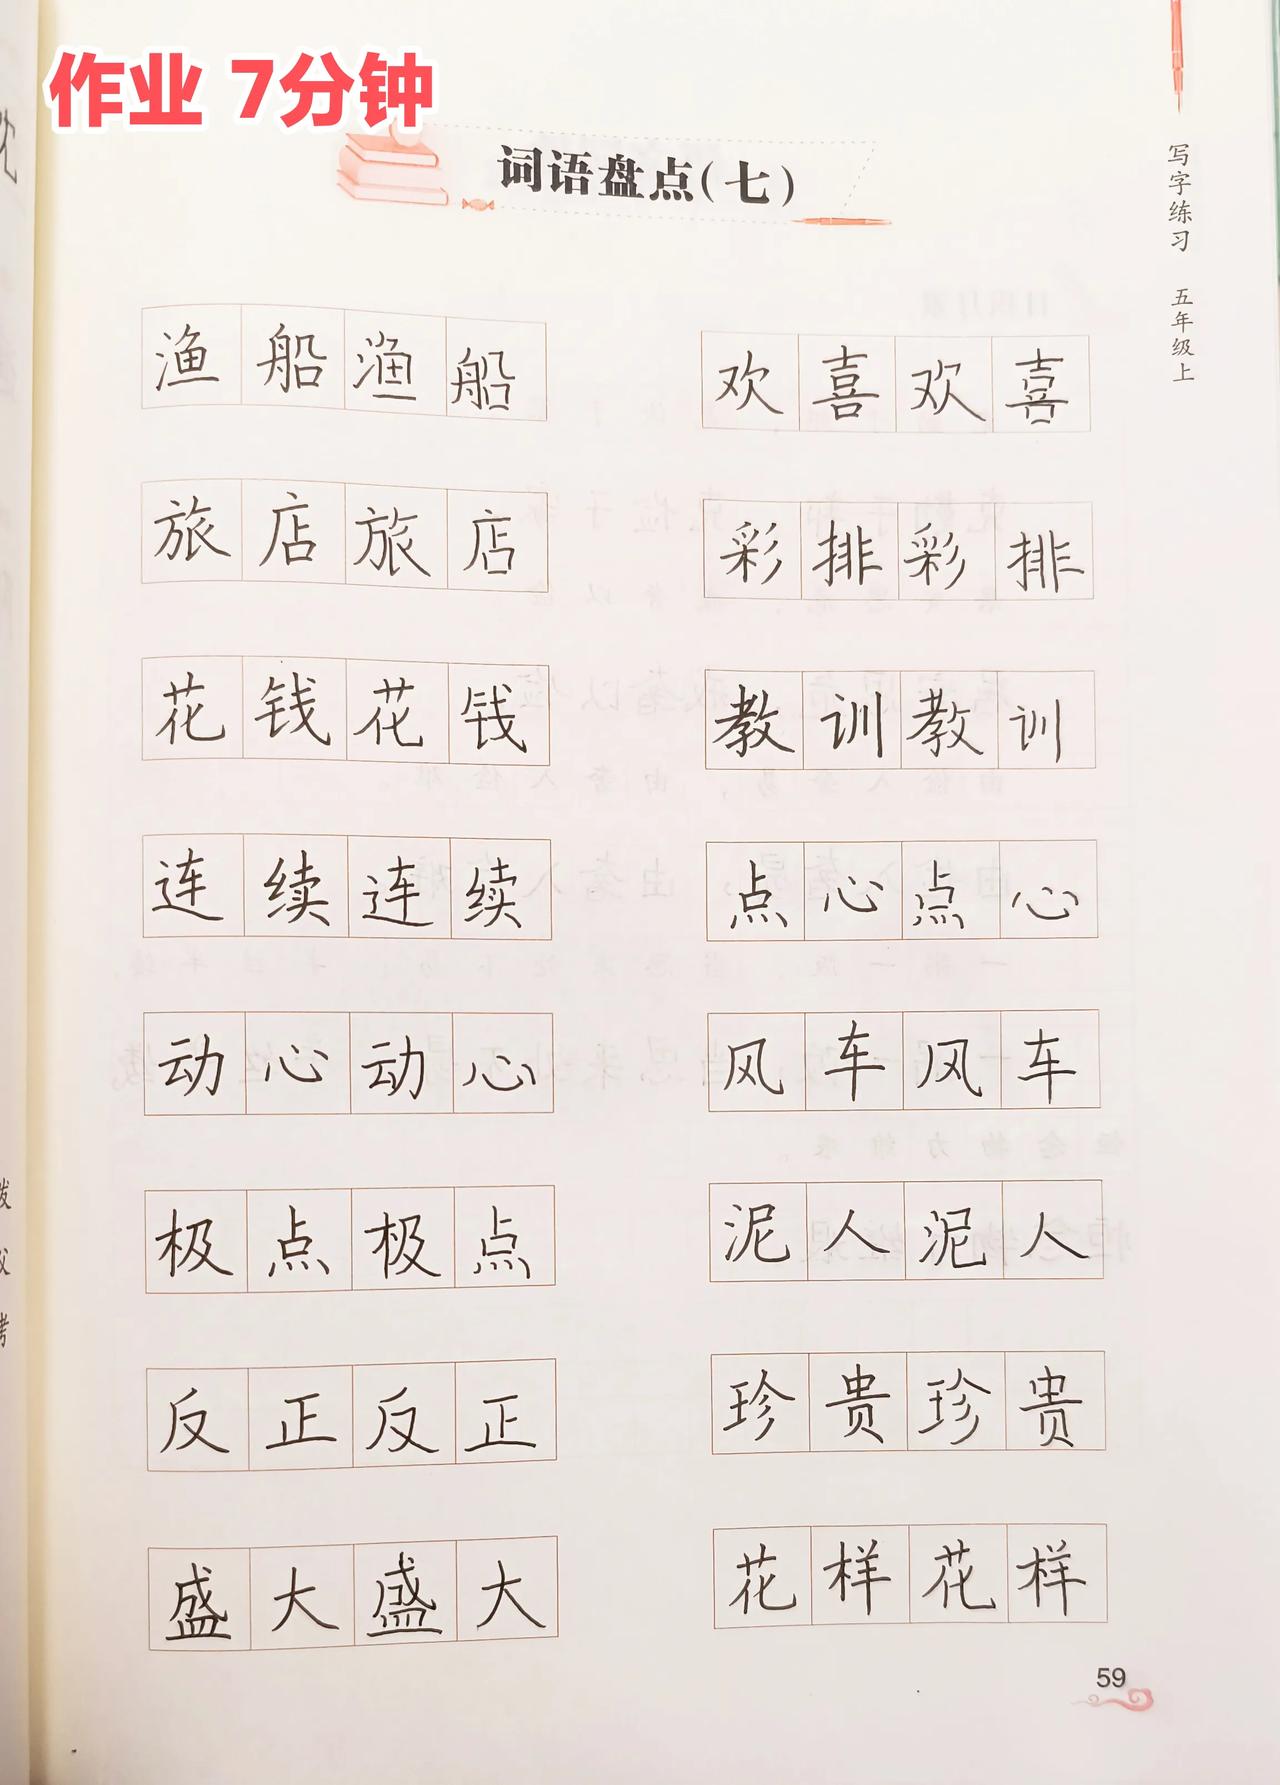 作业 7分钟
词语盘点(七)
写字练习 五年级上
渔船渔船 欢喜欢喜
旅店旅店 彩排彩排
花钱花钱 教训教训
连续连续 点心点心
动心动心 风车风车
极点极点 泥人泥人
反正反正 珍贵珍贵
盛大盛大 花样花样
59